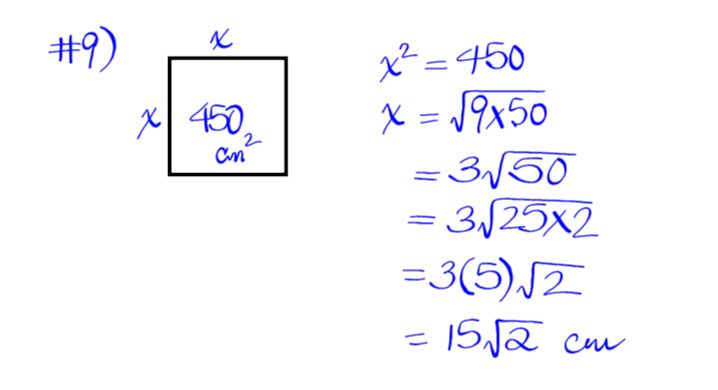 #9)
x
x
450
cm²
x² = 450
x = √9x50
= 3√50
= 3√25x2
= 3(5)√2
= 15√2 cm